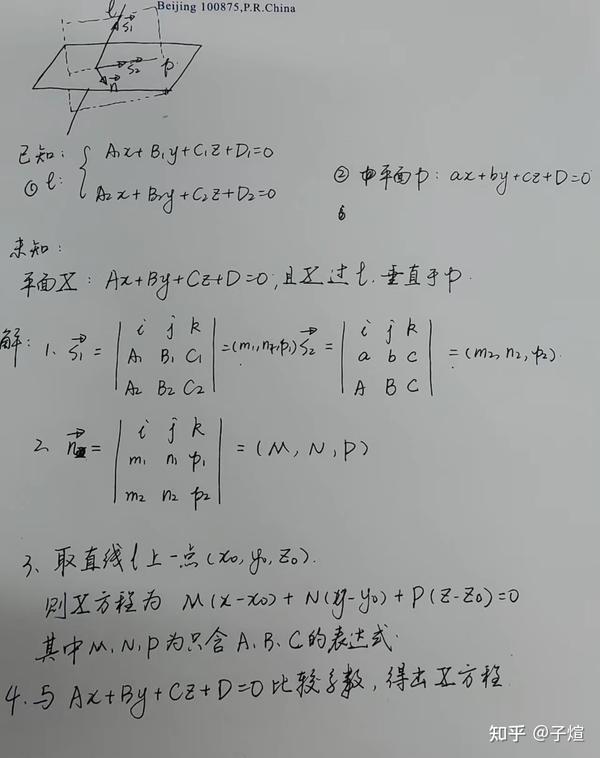 Beijing 100875,P.R.China
l
S₁
S₂
p
n
已知:
① l: { A₁x+B₁y+C₁z+D₁=0
A₂x+B₂y+C₂z+D₂=0
② 平面p: ax+by+cz+D=0
未知:
平面X: Ax+By+Cz+D=0,且X过l.垂直于p.
解: 1、S₁ = | i j k | = (m₁,n₁,p₁) S₂ = | i j k | = (m₂,n₂,p₂).
A₁ B₁ C₁ a b c
A₂ B₂ C₂ A B C
2、n = | i j k | = (M,N,P)
m₁ n₁ p₁
m₂ n₂ p₂
3、取直线l上一点(x₀,y₀,z₀).
则X方程为 M(x-x₀)+N(y-y₀)+P(z-z₀)=0
其中M、N、P为只含A、B、C的表达式.
4.与Ax+By+Cz+D=0比较系数,得出X方程
知乎 @子煊